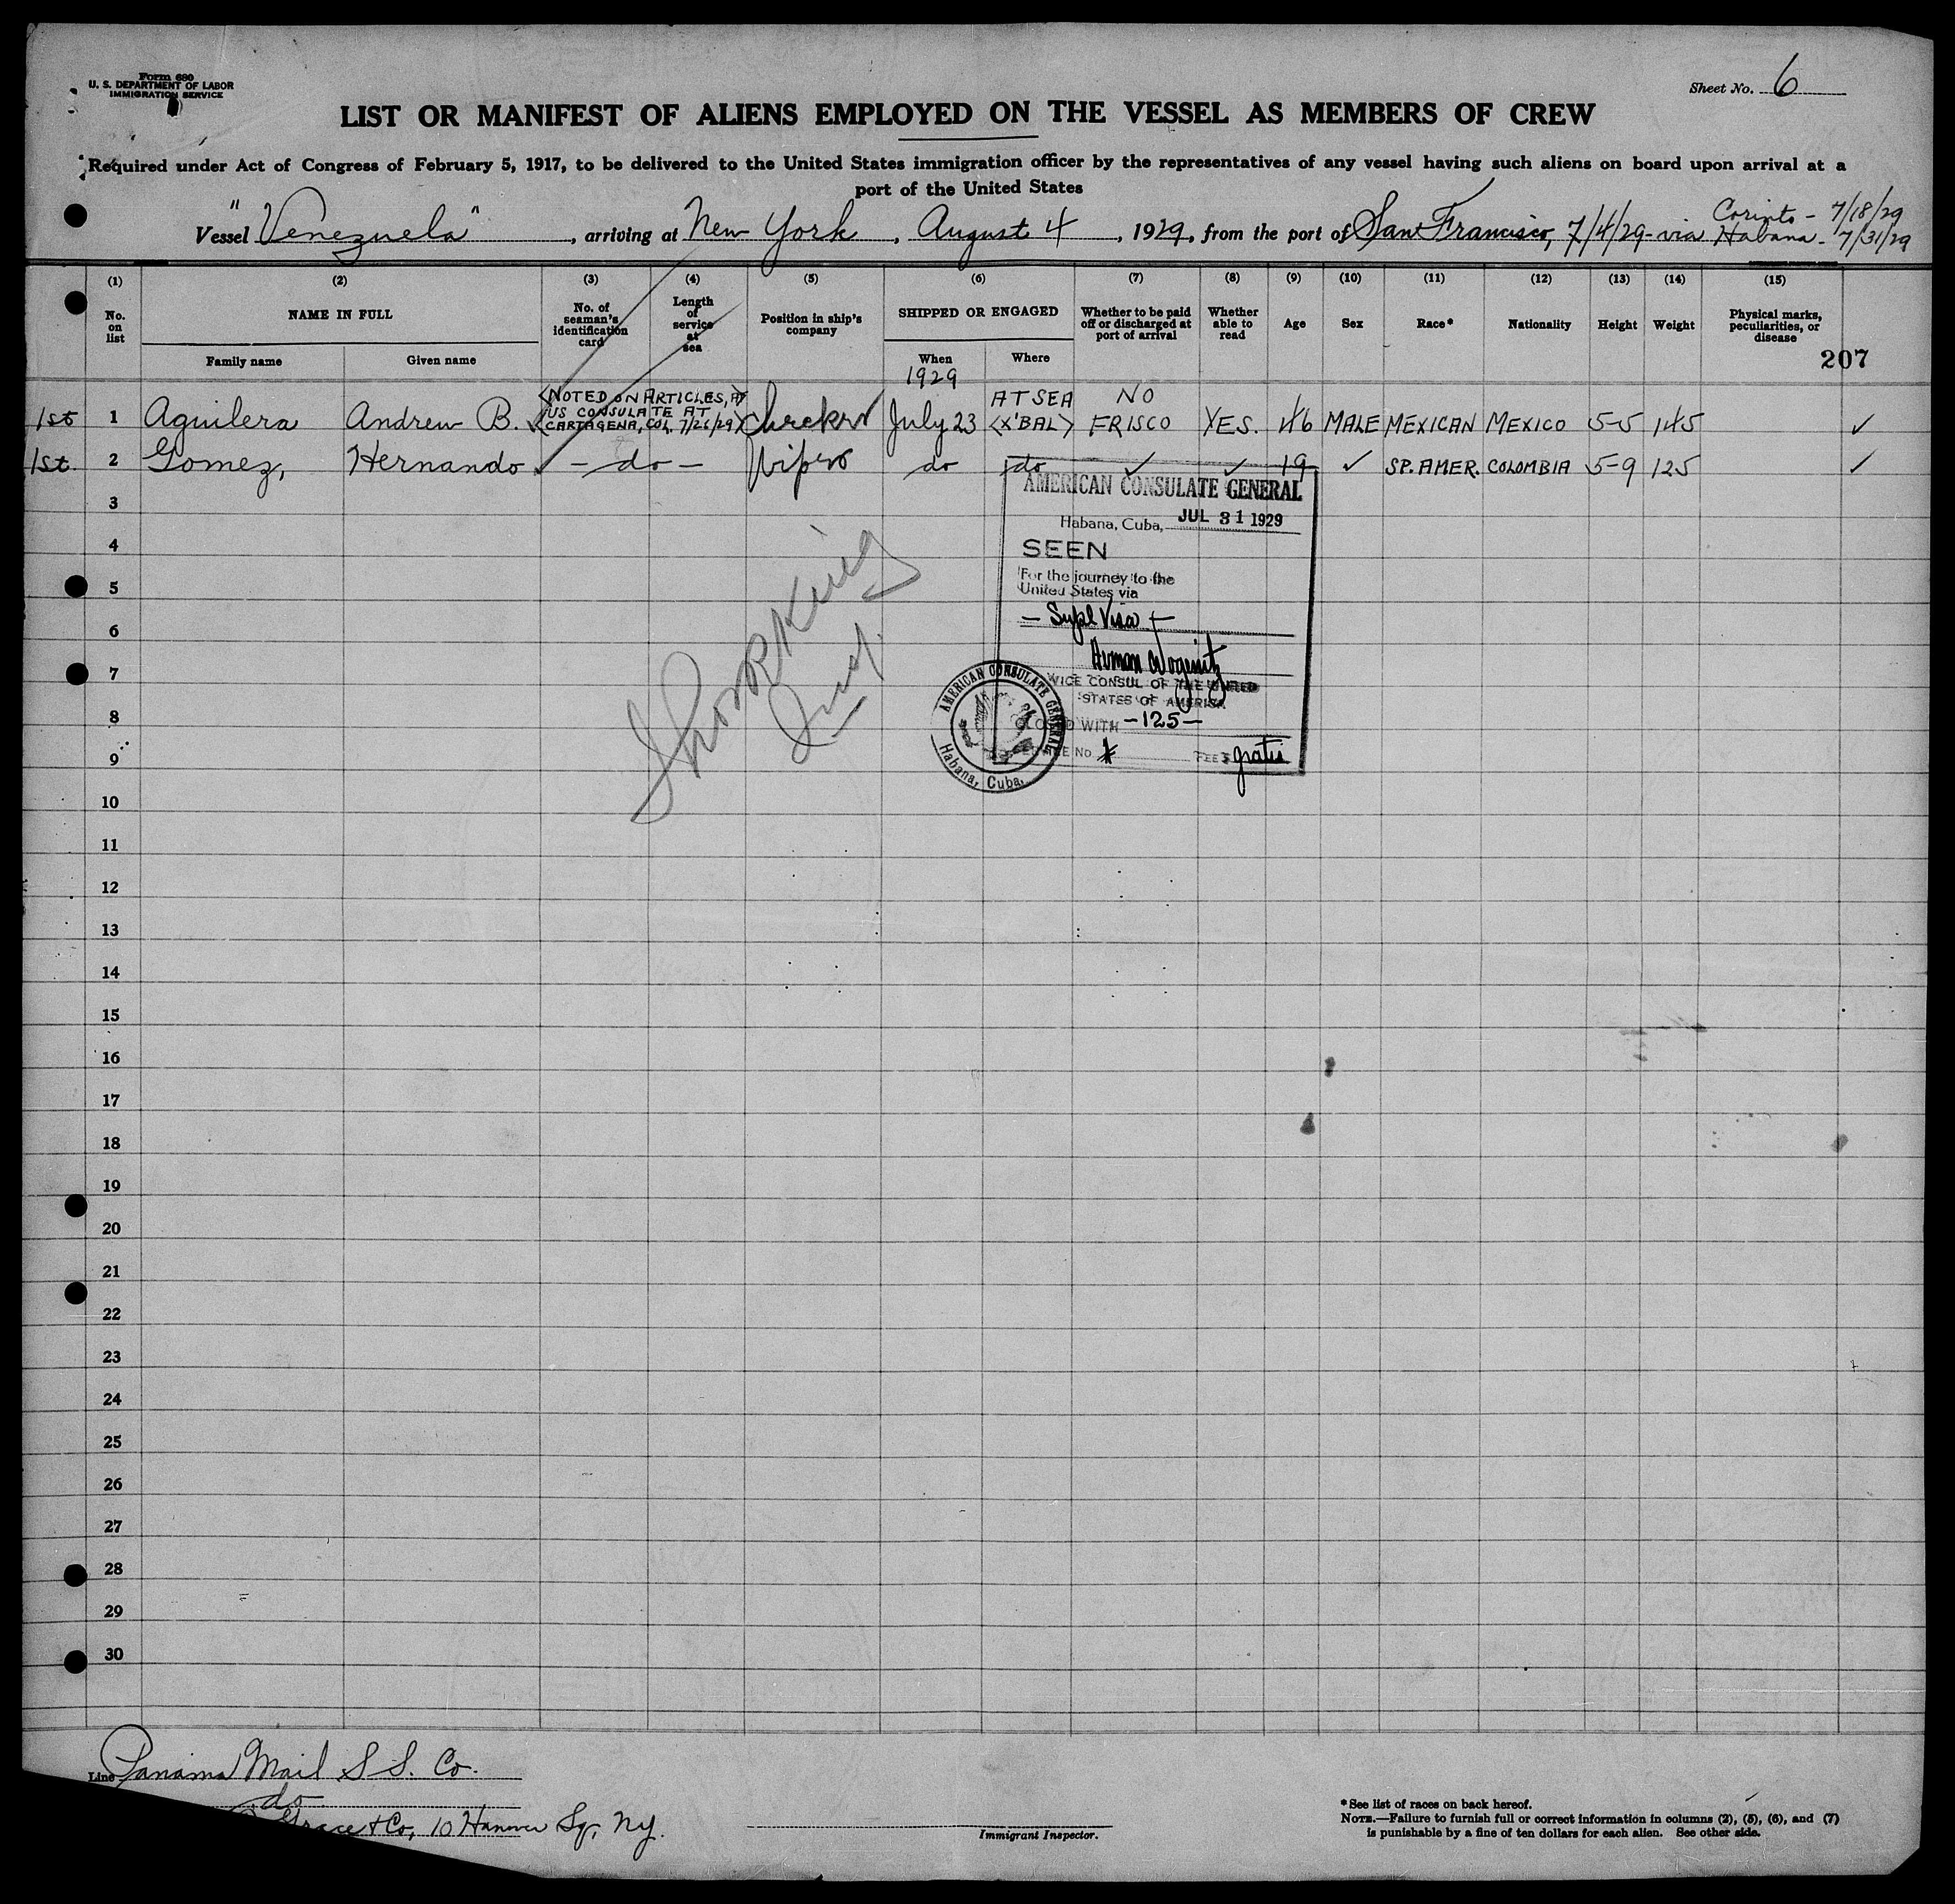 Form 680
U. S. DEPARTMENT OF LABOR
IMMIGRATION SERVICE
Sheet No. 6
LIST OR MANIFEST OF ALIENS EMPLOYED ON THE VESSEL AS MEMBERS OF CREW
Required under Act of Congress of February 5, 1917, to be delivered to the United States immigration officer by the representatives of any vessel having such aliens on board upon arrival at a
port of the United States
Corinto - 7/18/29
Vessel "Venezuela", arriving at New York, August 4, 1929, from the port of San Francisco, 7/4/29 - via Habana - 7/31/29
(1) (2) (3) (4) (5) (6) (7) (8) (9) (10) (11) (12) (13) (14) (15)
No. on list
NAME IN FULL
Family name Given name
No. of seaman's identification card
Length of service at sea
Position in ship's company
SHIPPED OR ENGAGED
When Where
1929
Whether to be paid off or discharged at port of arrival
Whether able to read
Age
Sex
Race*
Nationality
Height
Weight
Physical marks, peculiarities, or disease
207
1st 1 Aguilera Andrew B. ✓ <NOTED ON ARTICLES, AT US CONSULATE AT CARTAGENA, COL. 7/26/29> Checker July 23 AT SEA <X'BAL> NO FRISCO YES. 46 MALE MEXICAN MEXICO 5-5 145 ✓
1st. 2 Gomez, Hernando ✓ - do - Wiper do do ✓ ✓ 19 ✓ SP. AMER. COLOMBIA 5-9 125 ✓
3
4
5
6
7
8
9
10
11
12
13
14
15
16
17
18
19
20
21
22
23
24
25
26
27
28
29
30
AMERICAN CONSULATE GENERAL
Habana, Cuba, JUL 31 1929
SEEN
For the journey to the
United States via
- Supl Visa -
VICE CONSUL OF THE UNITED
STATES OF AMERICA
WITH -125-
No.
FEE $ gratis
AMERICAN CONSULATE GENERAL
Habana, Cuba.
Insp.
Line Panama Mail S S. Co.
do
Grace & Co, 10 Hanover Sq, N.y.
Immigrant Inspector.
* See list of races on back hereof.
NOTE.—Failure to furnish full or correct information in columns (2), (5), (6), and (7)
is punishable by a fine of ten dollars for each alien. See other side.